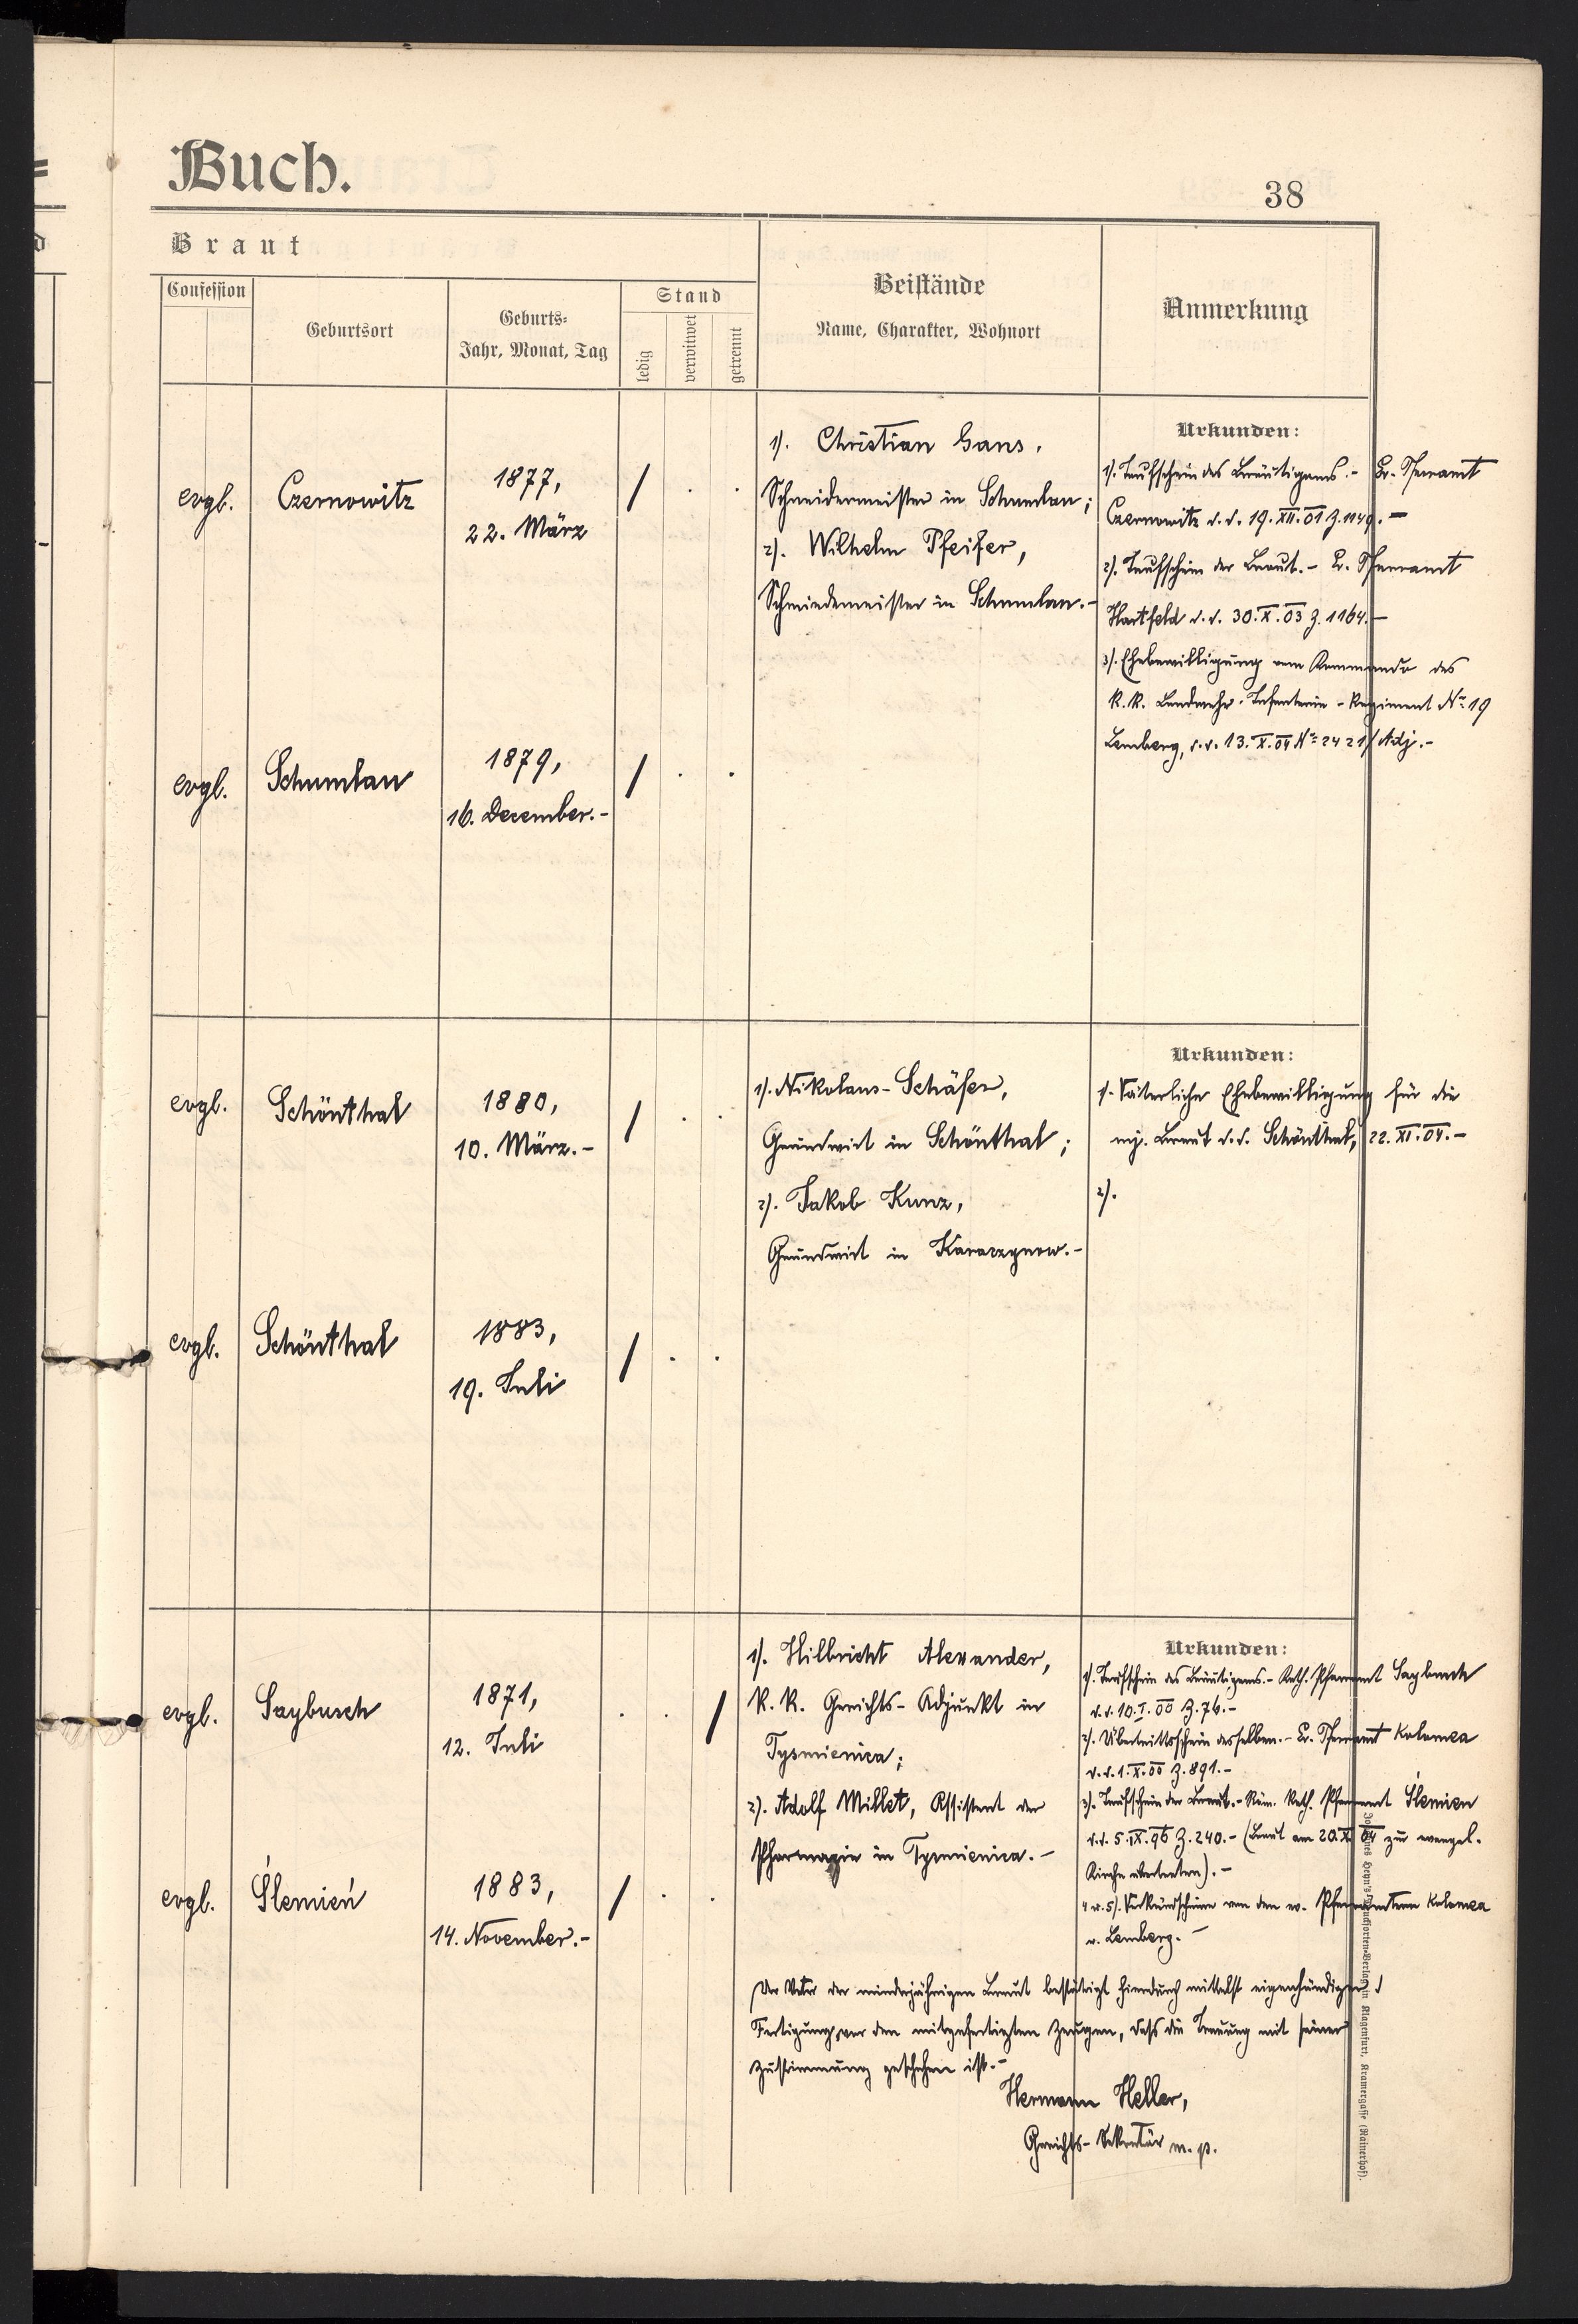 Buch.
38
Braut
Confession
Geburtsort
Geburts=
Jahr, Monat, Tag
Stand
ledig
verwitwet
getrennt
Beistände
Name, Charakter, Wohnort
Anmerkung
evgl.
Czernowitz
1877,
22. März
/ . .
1). Christian Gans,
Schneidermeister in Schumlan;
2). Wilhelm Pfeifer,
Schmiedemeister in Schumlan.-
Urkunden:
1). Taufschein des Bräutigams.- Ev. Pfarramt
Czernowitz d. d. 19. XII. 01 Z. 1149.-
2). Taufschein der Braut.- Ev. Pfarramt
Hartfeld d. d. 30. X. 03 Z. 1164.-
3). Ehebewilligung vom Kommando des
K. K. Landwehr-Infanterie-Regiment No 19
Lemberg, d. d. 13. X. 04 No 2421/Adj.-
evgl.
Schumlan
1879,
16. December.-
/ . .
evgl.
Schönthal
1880,
10. März.-
/ . .
1). Nikolaus Schäfer,
Grundwirt in Schönthal;
2). Jakob Kunz,
Grundwirt in Karaczynow.-
Urkunden:
1). Väterliche Ehebewilligung für die
mj. Braut d. d. Schönthal, 22. XI. 04.-
2).
evgl.
Schönthal
1883,
19. Juli
/ . .
evgl.
Saybusch
1871,
12. Juli
. . /
1). Hilbricht Alexander,
K. K. Gerichts-Adjunkt in
Tysmienica;
2). Adolf Millet, Assistent der
Pharmazie in Tysmienica.-
Urkunden:
1). Taufschein des Bräutigams.- Kath. Pfarramt Saybusch
d. d. 10. I. 00 Z. 76.-
2). Übertrittsschein desselben.- Ev. Pfarramt Kolomea
d. d. 1. X. 00 Z. 891.-
3). Taufschein der Braut.- Röm. Kath. Pfarramt Ślemien
d. d. 5. IX. 96 Z. 240.- (Braut am 20. X. 04 zur evangel.
Kirche übertreten).-
4 u. 5). Verkündscheine von den ev. Pfarrämtern Kolomea
u. Lemberg.-
evgl.
Ślemień
1883,
14. November.-
/ . .
Der Vater der minderjährigen Braut bestätigt hierdurch mittelst eigenhändiger
Fertigung vor den mitgefertigten Zeugen, daß die Trauung mit seiner
Zustimmung geschehen ist.-
Hermann Heller,
Gerichts-Sekretär m. p.
Johannes Heyn's Drucksorten-Verlag in Klagenfurt, Kramergasse (Rainerhof).